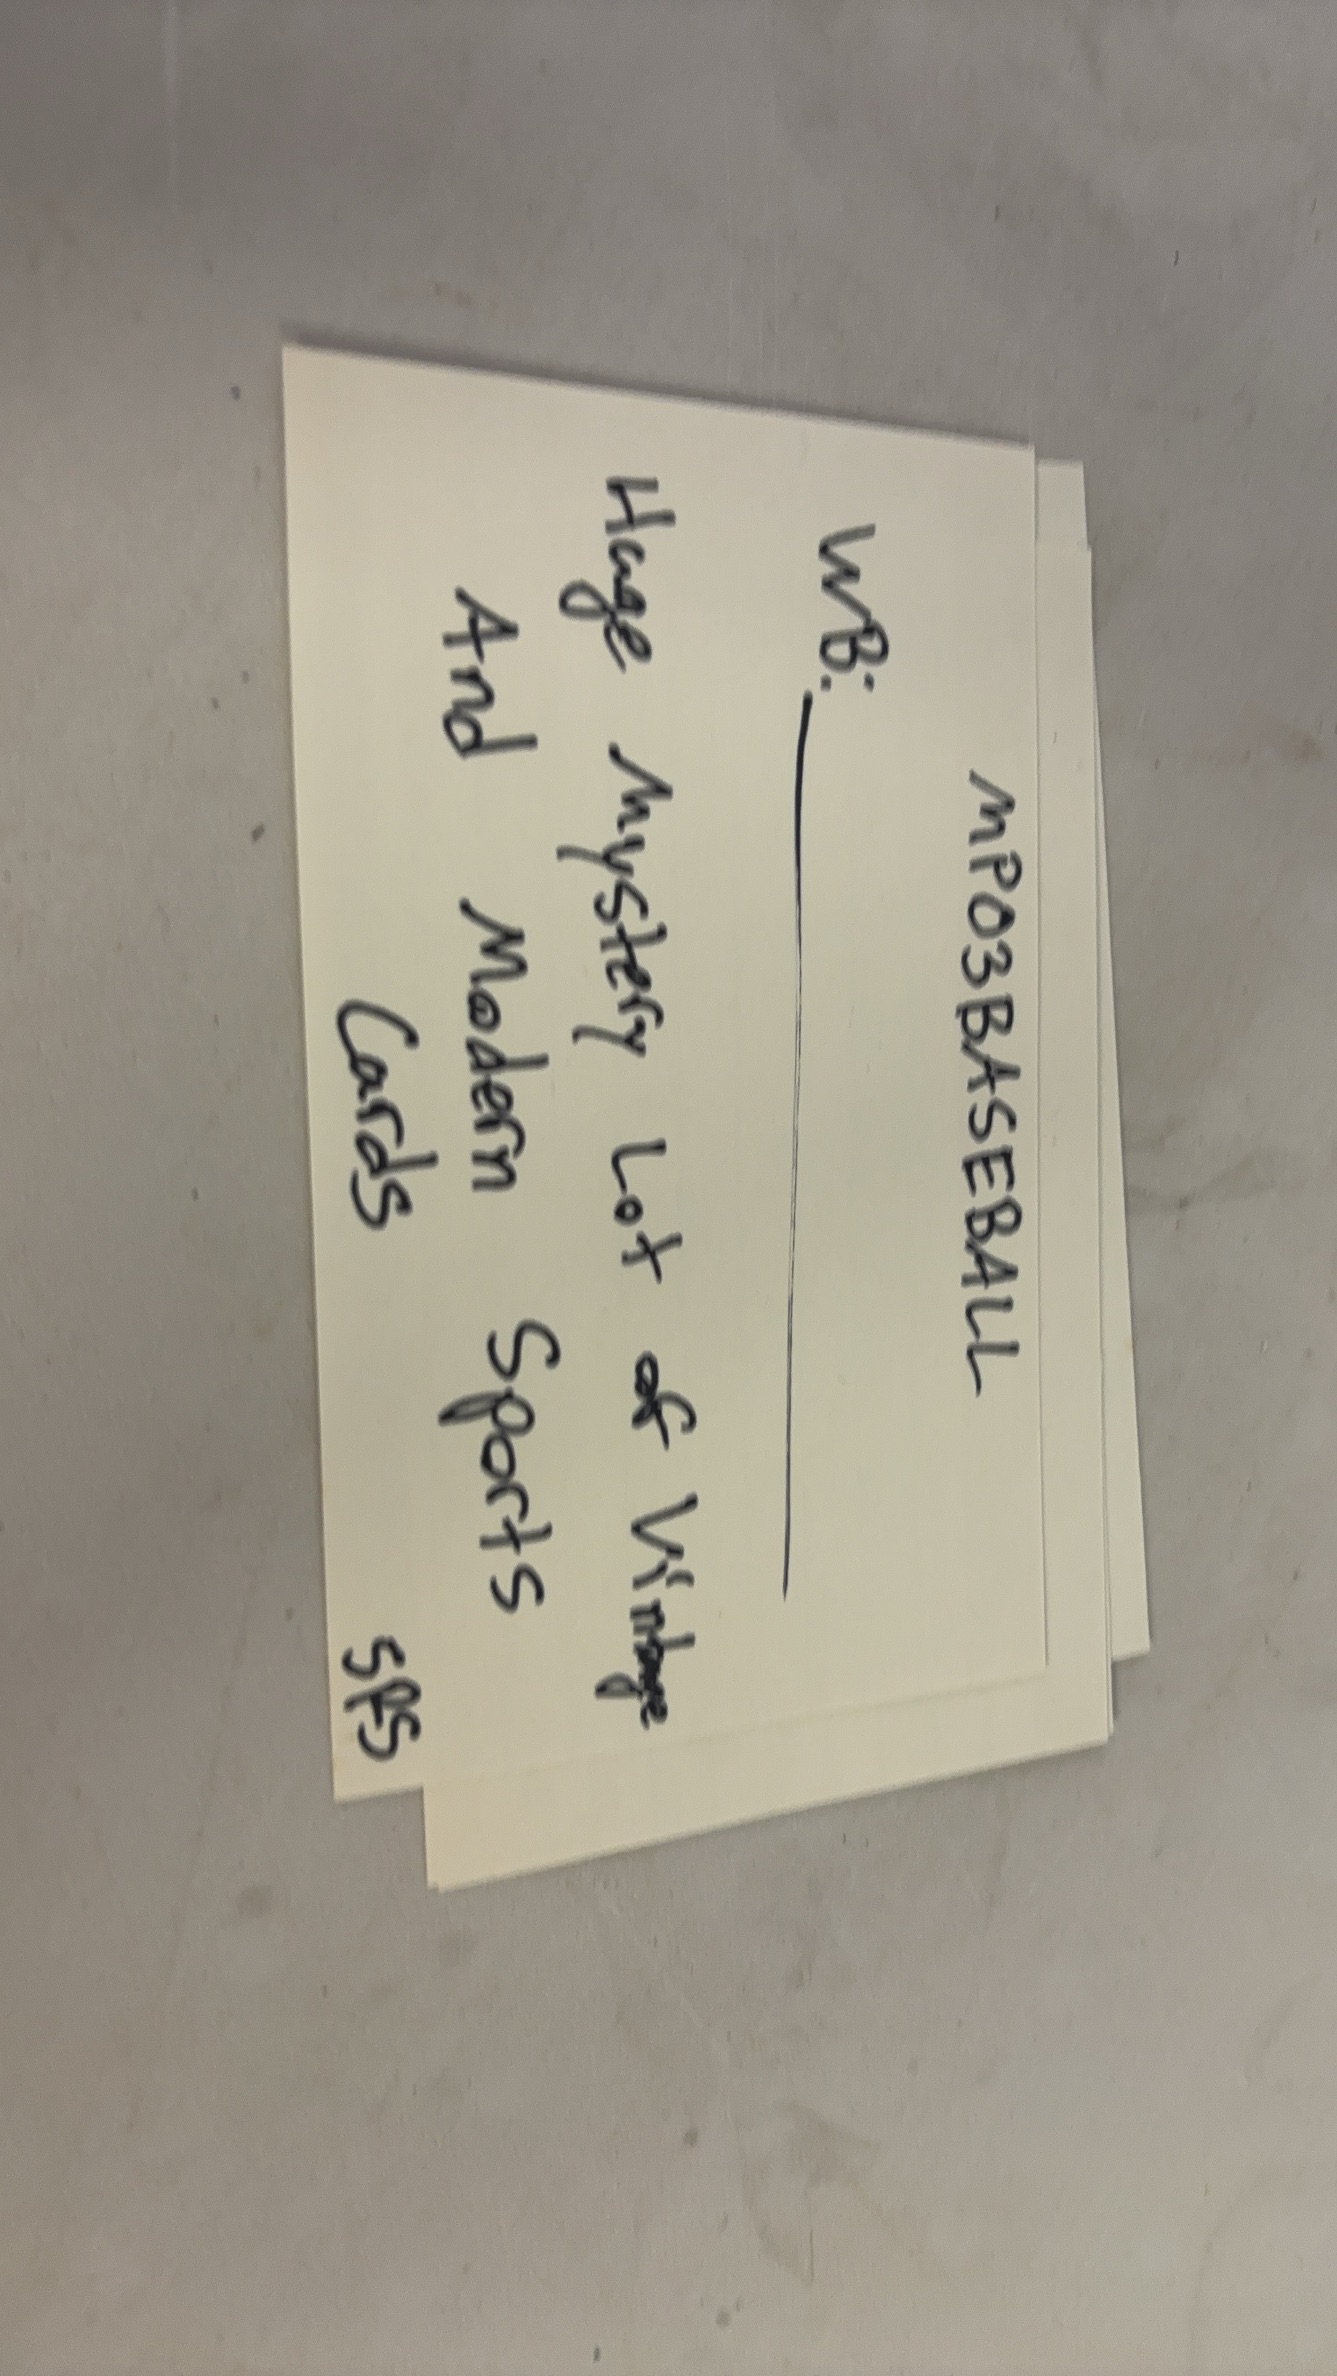 MPO3BASEBALL
WB:
Huge Mystery Lot of Vintage
And Modern Sports
Cards
SPS